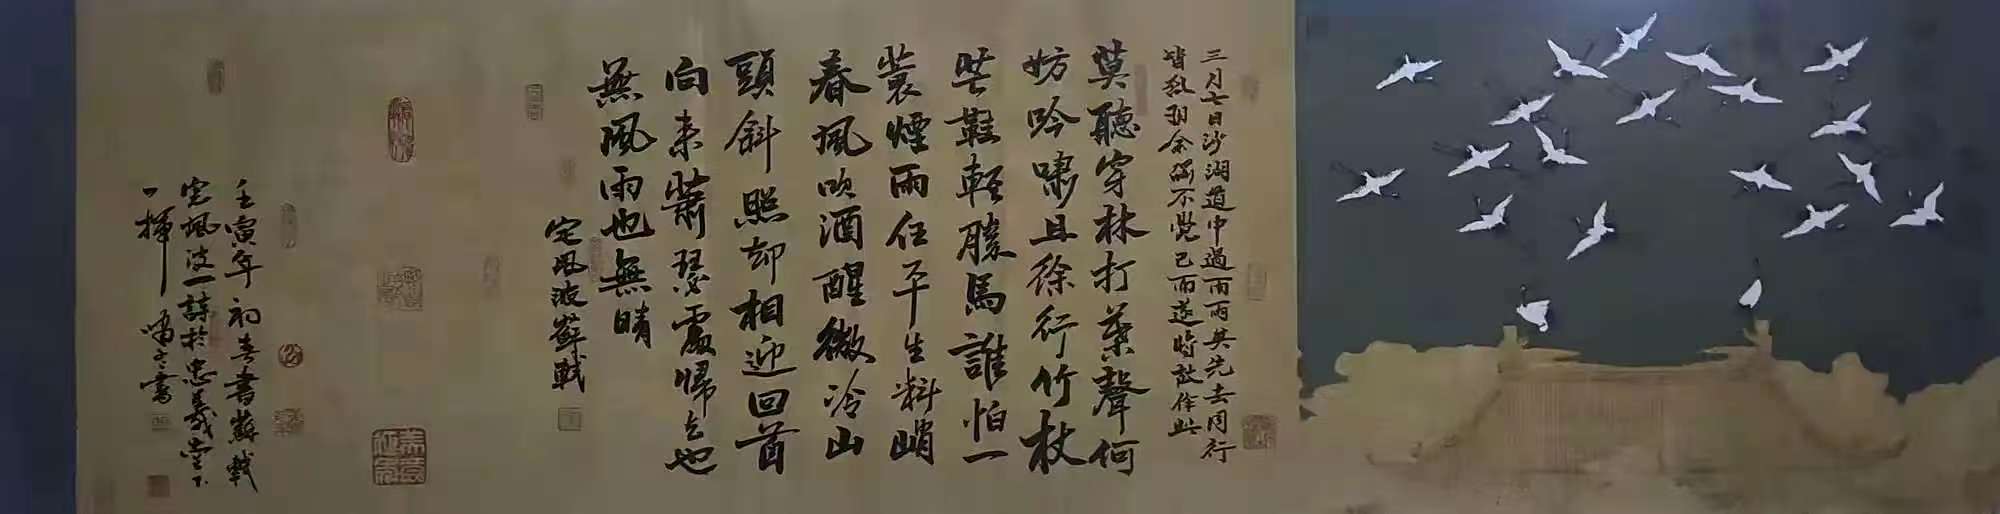 三月七日沙湖道中遇雨雨具先去同行
皆狼狽余獨不覺已而遂晴故作此
莫聽穿林打葉聲何
妨吟嘯且徐行竹杖
芒鞋輕勝馬誰怕一
蓑煙雨任平生料峭
春風吹酒醒微冷山
頭斜照却相迎回首
向来蕭瑟處歸去也
無風雨也無晴
定風波蘇軾
壬寅年初春書蘇軾
定風波一詩於忠義堂下
一揮